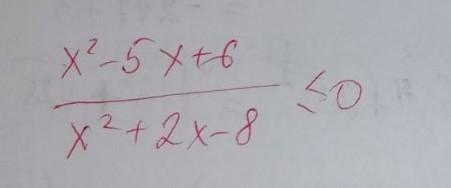 x²-5x+6
x²+2x-8 ≤0